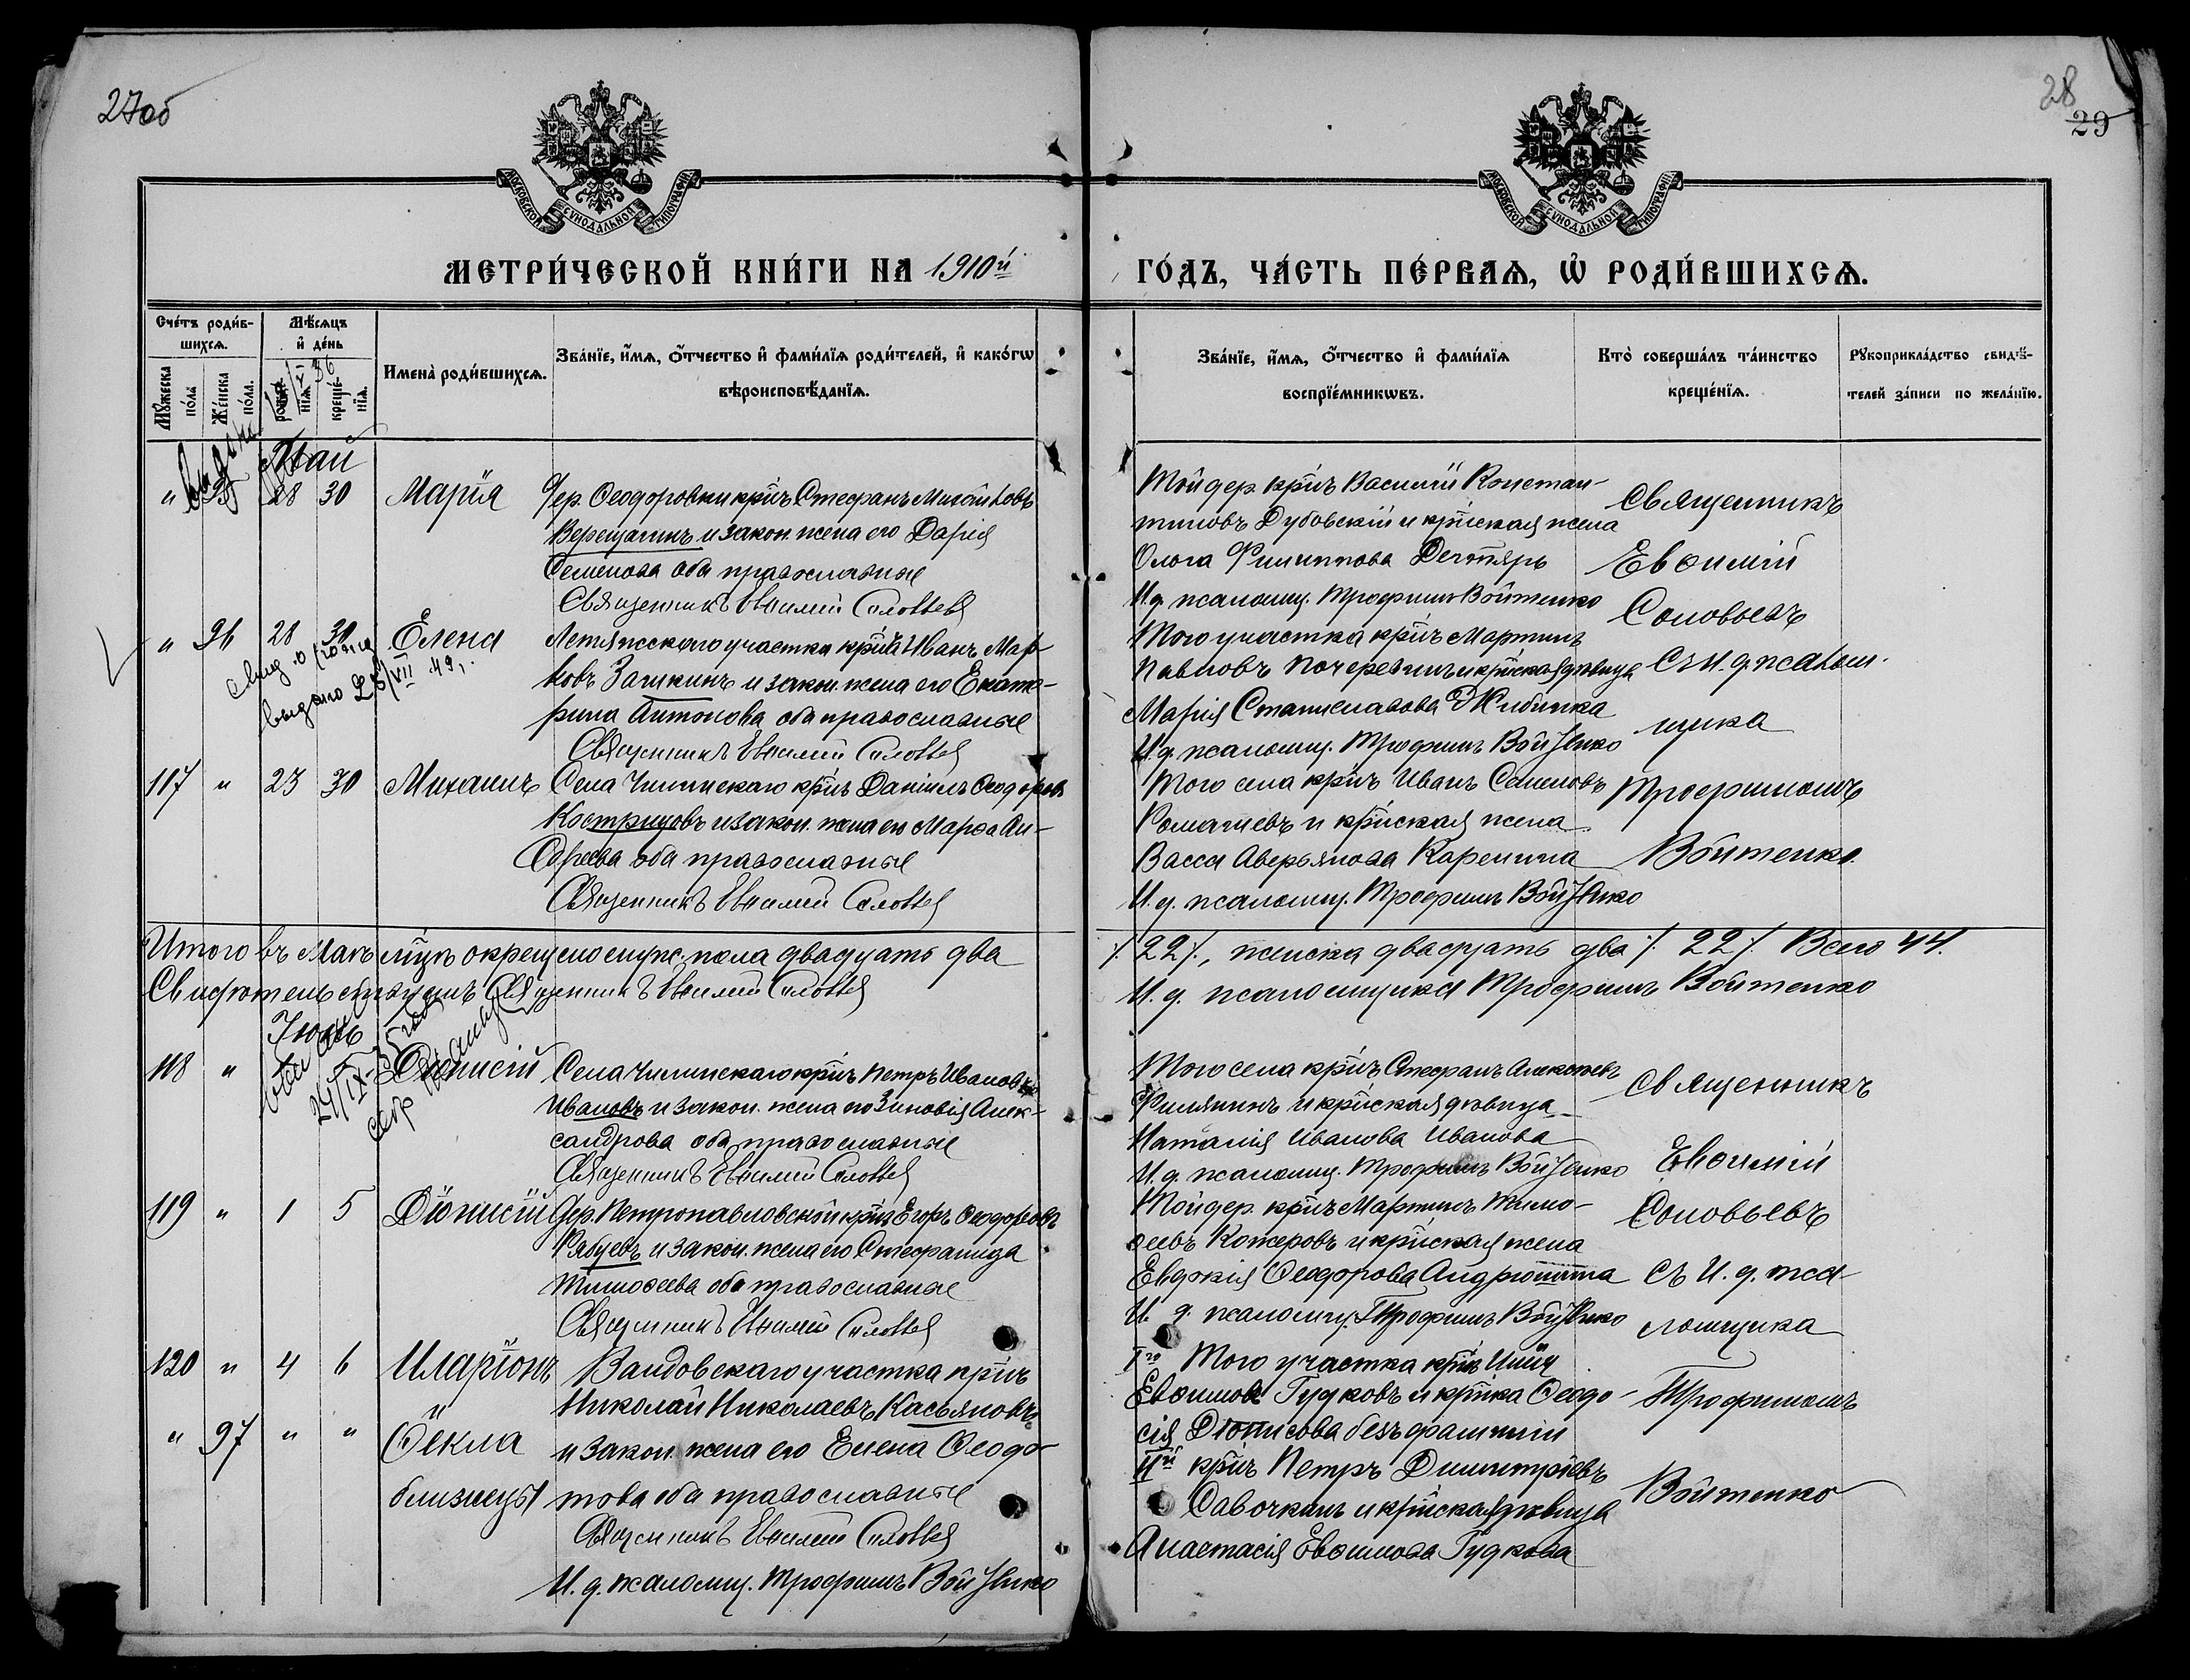 27об
28
29
МОСКОВСКОЙ СѴНОДАЛЬНОЙ ТИПОГРАФІИ
МОСКОВСКОЙ СѴНОДАЛЬНОЙ ТИПОГРАФІИ
МЕТРИ́ЧЕСКОЙ КНИ́ГИ НА 1910й
ГО́ДЪ, ЧА́СТЬ ПЕ́РВАѦ, Ѡ҆ РОДИ́ВШИХСѦ.
Сче́тъ роди́в-
шихсѧ.
Мѣ́сѧцъ
и҆ де́нь
Мꙋ́жеска по́ла
Же́нска по́ла.
рожде́нїѧ
креще́нїѧ.
Имена̀ роди́вшихсѧ.
Зва́нїе, и҆́мѧ, ѻ҆́тчество и҆ фами́лїѧ роди́телей, и҆ како́гѡ
вѣроисповѣ́данїѧ.
Зва́нїе, и҆́мѧ, ѻ҆́тчество и҆ фами́лїѧ
воспрїе́мникѡвъ.
Кто̀ соверша́лъ та́инство
креще́нїѧ.
Рꙋкоприкла́дство свидѣ́-
телей за́писи по жела́нїю.
Май
" 95 28 30 Марія Дер. Ѳеодоровки кр҃нъ Стефанъ Михайловъ
Верещагинъ и закон. жена его Дарія
Семенова оба православные
Священникъ Евѳимій Соловьевъ
Той дер. кр҃нъ Василій Констан-
тиновъ Дубовскій и кр҃нская жена
Ольга Филиппова Дегтярь
И. д. псаломщ. Трофимъ Войтенко
Священникъ
Евѳимій
Соловьевъ
съ И. д. псалом-
щика
Трофимомъ
Войтенко.
" 96 28 30 Елена Летяжскаго участка кр҃нъ Иванъ Мар-
ковъ Зашкинъ и закон. жена его Екате-
рина Антонова оба православные
Священникъ Евѳимій Соловьевъ
свид. о
выдано 25/VII 49 г.
Того участка кр҃нъ Мартинъ
Павловъ и кр҃нская дѣвица
Марія Станиславова
И. д. псаломщ. Трофимъ Войтенко
117 " 23 30 Михаилъ Села Чилинскаго кр҃нъ Даніилъ Ѳеодоровъ
Кострицовъ и закон. жена его Марѳа Ан-
дреева оба православные
Священникъ Евѳимій Соловьевъ
Того села кр҃нъ Иванъ Семеновъ
Ромачевъ и кр҃нская жена
Васса Аверьянова Каренина
И. д. псаломщ. Трофимъ Войтенко
Итого въ Маѣ мѣсяцѣ окрещено мужс. пола двадцать два
·/. 22 ·/., женска двадцать два ·/. 22 ·/. Всего 44.
Свидѣтельствуемъ Священникъ Евѳимій Соловьевъ
И. д. псаломщика Трофимъ Войтенко
Іюнь
118 " Діонисій Села Чилинскаго кр҃нъ Петръ Ивановъ
Ивановъ и закон. жена его Зиновія Алек-
сандрова оба православные
Священникъ Евѳимій Соловьевъ
Того села кр҃нъ Стефанъ Алексѣевъ
Филякинъ и кр҃нская дѣвица
Наталія Иванова Иванова
И. д. псаломщ. Трофимъ Войтенко
Священникъ
Евѳимій
Соловьевъ
съ И. д. пса-
ломщика
Трофимомъ
Войтенко
119 " 1 5 Діонисій Дер. Петропавловской кр҃нъ Егоръ Ѳеодоровъ
Рябцевъ и закон. жена его Стефанида
Тимоѳеева оба православные
Священникъ Евѳимій Соловьевъ
Той дер. кр҃нъ Мартинъ Тимо-
ѳеевъ Кожеровъ и кр҃нская жена
Евдокія Ѳеодорова
И. д. псаломщ. Трофимъ Войтенко
120 " 4 6 Иларіонъ Вандовскаго участка кр҃нъ
Николай Николаевъ Касьяновъ
" 97 " " Ѳекла и закон. жена его Елена Ѳеодо-
близнецы това оба православные
Священникъ Евѳимій Соловьевъ
И. д. псаломщ. Трофимъ Войтенко
Iго Того участка кр҃нъ Илія
Евѳимовъ Гудковъ и кр҃нка Ѳеодо-
сія Діонисова безъ фамиліи
IIй кр҃нъ Петръ Димитріевъ
Савочкинъ и кр҃нская дѣвица
Анастасія Евѳимова Гудкова